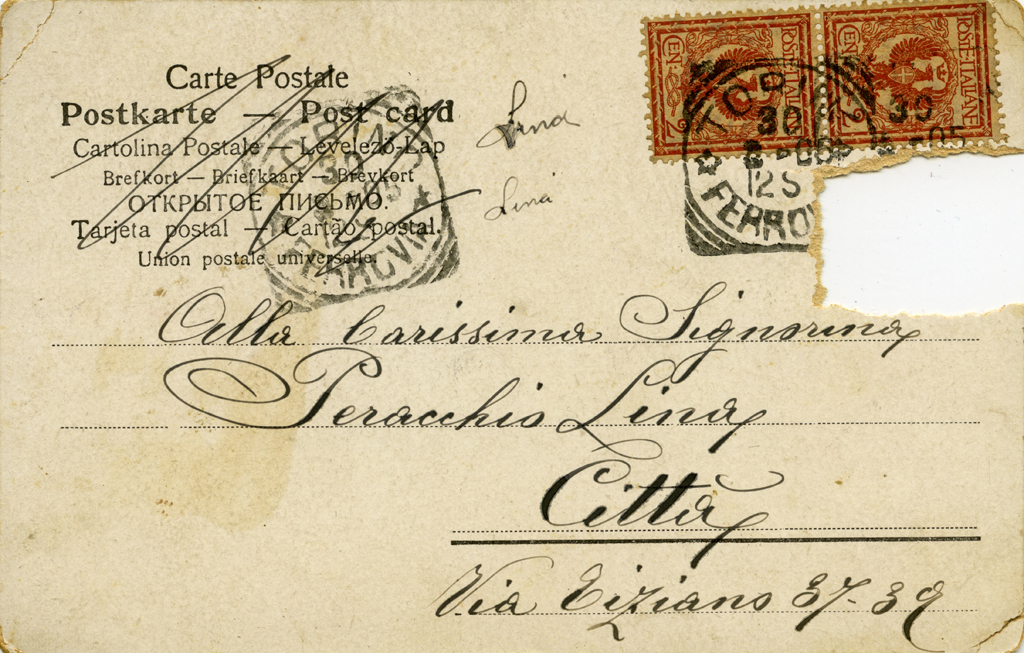 Carte Postale
Postkarte — Post card
Cartolina Postale — Levelező-Lap
Brefkort — Briefkaart — Brevkort
ОТКРЫТОЕ ПИСЬМО.
Tarjeta postal — Cartão postal.
Union postale universelle.
TORINO
30
05
12S
FERROVIA
POSTE·ITALIANE
CEN 2
POSTE·ITALIANE
CEN 2
TORINO
30
2 -05
12S
FERROV
30
-05
Lina
Lina
Alla Carissima Signorina
Peracchio Lina
Città
Via Tiziano 37-39